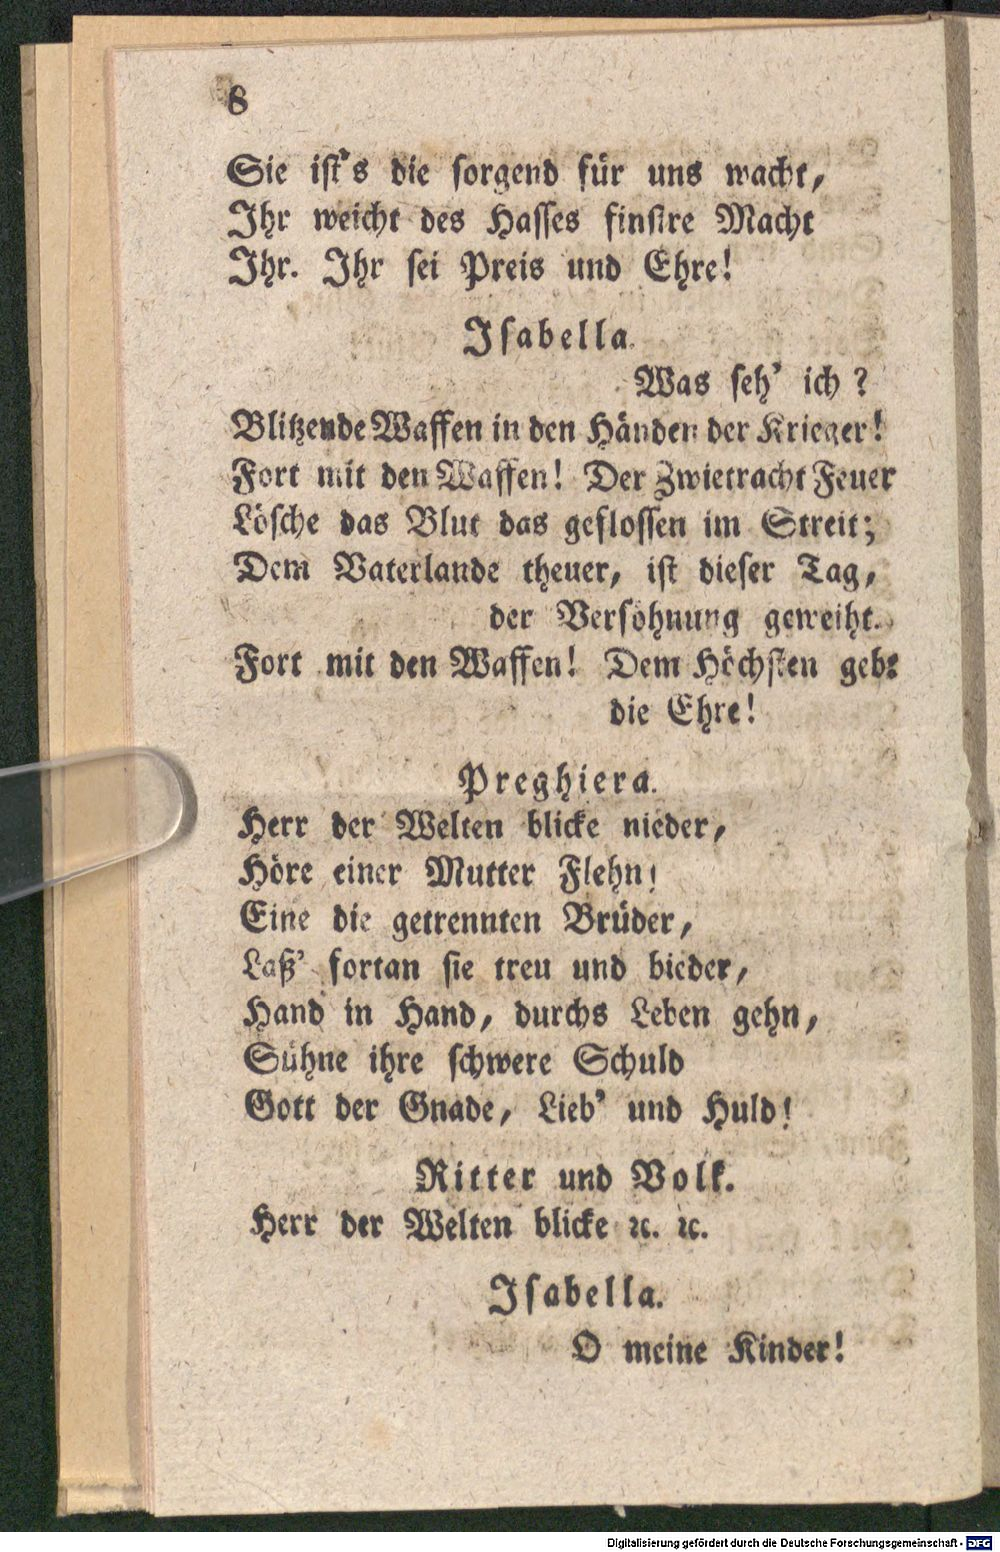 8
Sie ist's die sorgend für uns wacht,
Ihr weicht des Hasses finstre Macht
Ihr. Ihr sei Preis und Ehre!
Isabella.
Was seh' ich?
Blitzende Waffen in den Händen der Krieger!
Fort mit den Waffen! Der Zwietracht Feuer
Lösche das Blut das geflossen im Streit;
Dem Vaterlande theuer, ist dieser Tag,
der Versöhnung geweiht.
Fort mit den Waffen! Dem Höchsten gebt
die Ehre!
Preghiera.
Herr der Welten blicke nieder,
Höre einer Mutter Flehn!
Eine die getrennten Brüder,
Laß' fortan sie treu und bieder,
Hand in Hand, durchs Leben gehn,
Sühne ihre schwere Schuld
Gott der Gnade, Lieb' und Huld!
Ritter und Volk.
Herr der Welten blicke ꝛc. ꝛc.
Isabella.
O meine Kinder!
Digitalisierung gefördert durch die Deutsche Forschungsgemeinschaft - DFG